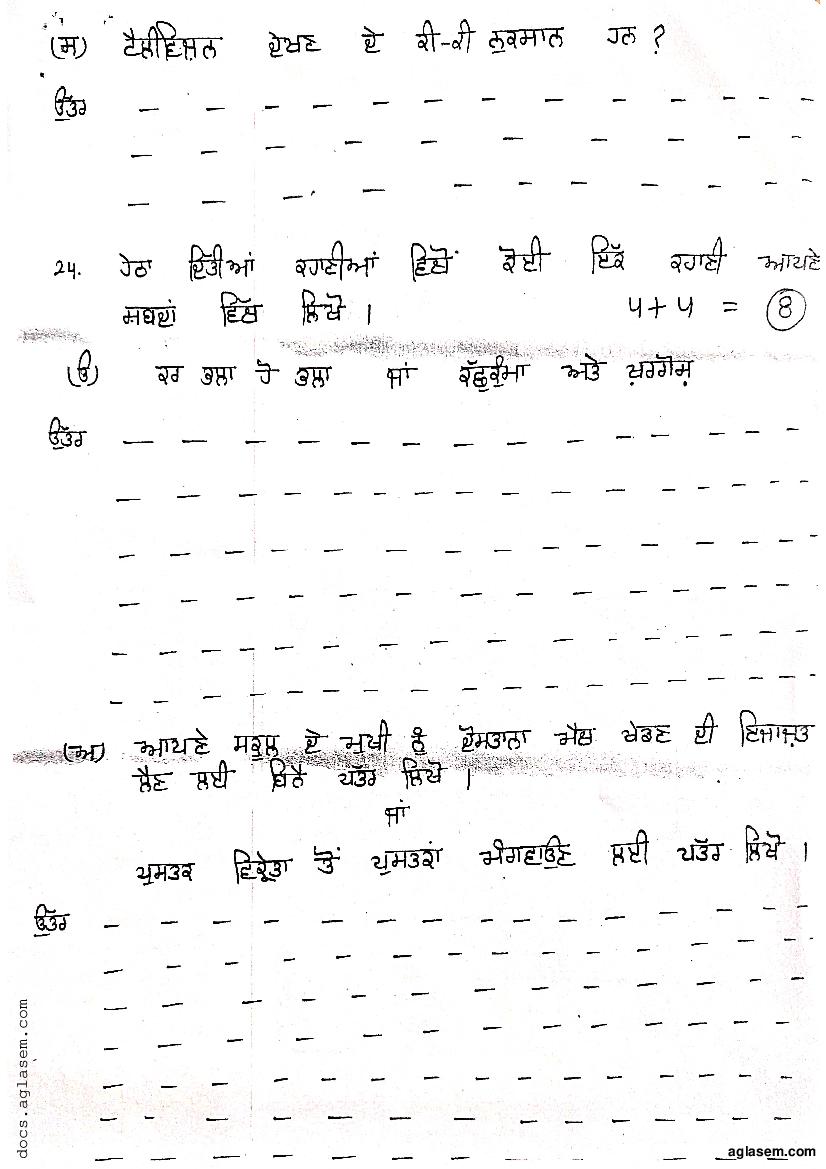 (ਸ) ਟੈਲੀਵਿਜ਼ਨ ਦੇਖਣ ਦੇ ਕੀ-ਕੀ ਨੁਕਸਾਨ ਹਨ ?
ਉੱਤਰ
24. ਹੇਠਾ ਦਿੱਤੀਆਂ ਕਹਾਣੀਆਂ ਵਿਚੋਂ ਕੋਈ ਇੱਕ ਕਹਾਣੀ ਆਪਣੇ
ਸ਼ਬਦਾਂ ਵਿੱਚ ਲਿਖੋ । 4+4 = 8
(ੳ) ਕਰ ਭਲਾ ਹੋ ਭਲਾ ਜਾਂ ਕੱਛੂਕੁੰਮਾ ਅਤੇ ਖ਼ਰਗੋਸ਼
ਉੱਤਰ
(ਅ) ਆਪਣੇ ਸਕੂਲ ਦੇ ਮੁਖੀ ਨੂੰ ਦੋਸਤਾਨਾ ਮੈਚ ਖੇਡਣ ਦੀ ਇਜਾਜ਼ਤ
ਲੈਣ ਲਈ ਬਿਨੈ ਪੱਤਰ ਲਿਖੋ ।
ਜਾਂ
ਪੁਸਤਕ ਵਿਕ੍ਰੇਤਾ ਤੋਂ ਪੁਸਤਕਾਂ ਮੰਗਵਾਉਣ ਲਈ ਪੱਤਰ ਲਿਖੋ ।
ਉੱਤਰ
docs.aglasem.com
aglasem.com